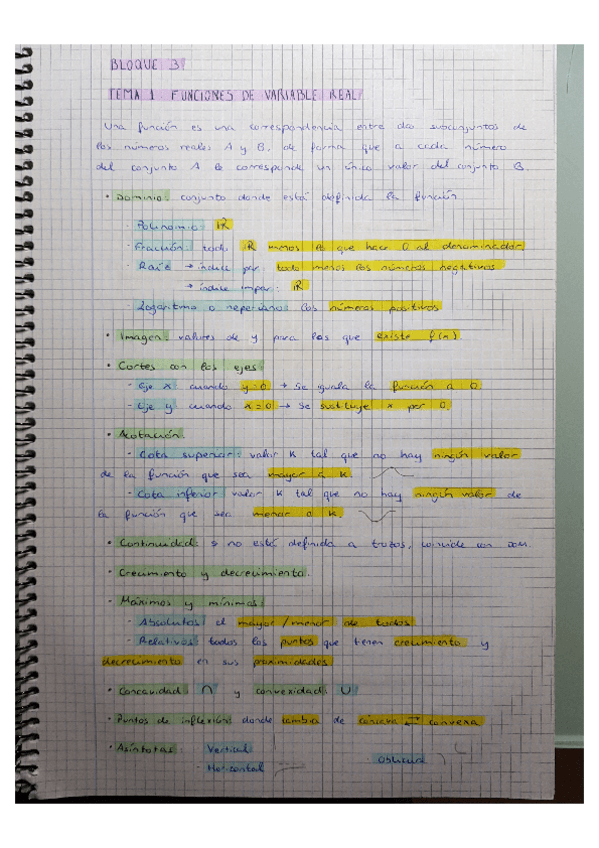 BLOQUE 3
TEMA 1 FUNCIONES DE VARIABLE REAL
Una función es una correspondencia entre dos subconjuntos de
los números reales A y B, de forma que a cada número
del conjunto A le corresponde un único valor del conjunto B.
· Dominio: conjunto donde está definida la función
- Polinomio: ℝ
- Fracción: todo ℝ menos lo que hace 0 al denominador
- Raíz → índice par: todo menos los números negativos
→ índice impar: ℝ
- Logaritmo o neperiano: los números positivos
· Imagen: valores de y para los que existe f(x).
· Cortes con los ejes:
- Eje x cuando y=0 → Se iguala la función a 0.
- Eje y cuando x=0 → Se sustituye x por 0.
· Acotación:
- Cota superior: valor K tal que no hay ningún valor
de la función que sea mayor a K.
- Cota inferior: valor K tal que no hay ningún valor de
la función que sea menor a K.
· Continuidad: si no está definida a trozos, coincide con
· Crecimiento y decrecimiento.
· Máximos y mínimos:
- Absolutos: el mayor/menor de todos
- Relativos: todos los puntos que tienen crecimiento y
decrecimiento en sus proximidades
· Concavidad: ∩ y convexidad: ∪
· Puntos de inflexión: donde cambia de cóncava ⇄ convexa
· Asíntotas: - Vertical - Oblicua
- Horizontal